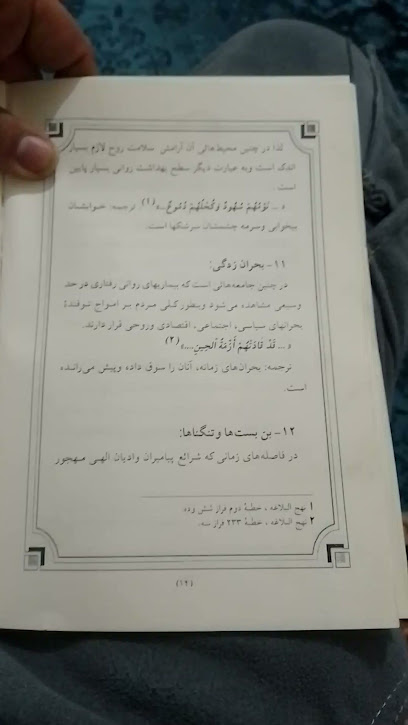 لذا در چنین محیط‌هائی آن آرامش سلامت روح لازم بسیار
اندک است وبه عبارت دیگر سطح بهداشت روانی بسیار پایین
است.
« ... نَوْمُهُمْ سُهُودٌ وَكُحْلُهُمْ دُمُوعٌ...» (۱) ترجمه: خوابشان
بیخوابی وسرمه چشمشان سرشکها است.
۱۱- بحران زدگی:
در چنین جامعه‌هائی است که بیماریهای روانی رفتاری در حد
وسیعی مشاهده می‌شود وبطور کلی مردم بر امواج توفندهٔ
بحرانهای سیاسی، اجتماعی، اقتصادی وروحی قرار دارند.
« ... قَدْ قَادَتْهُمْ أَزِمَّةُ الْحَينِ....» (۲)
ترجمه: بحران‌های زمانه، آنان را سوق داده وپیش می‌رانده
است.
۱۲- بن بست‌ها و تنگناها:
در فاصله‌های زمانی که شرائع پیامبران وادیان الهی مهجور
۱ نهج البلاغه ، خطبهٔ دوم فراز شش وده.
۲ نهج البلاغه ، خطبهٔ ۲۳۳ فراز سه.
(۱۲)